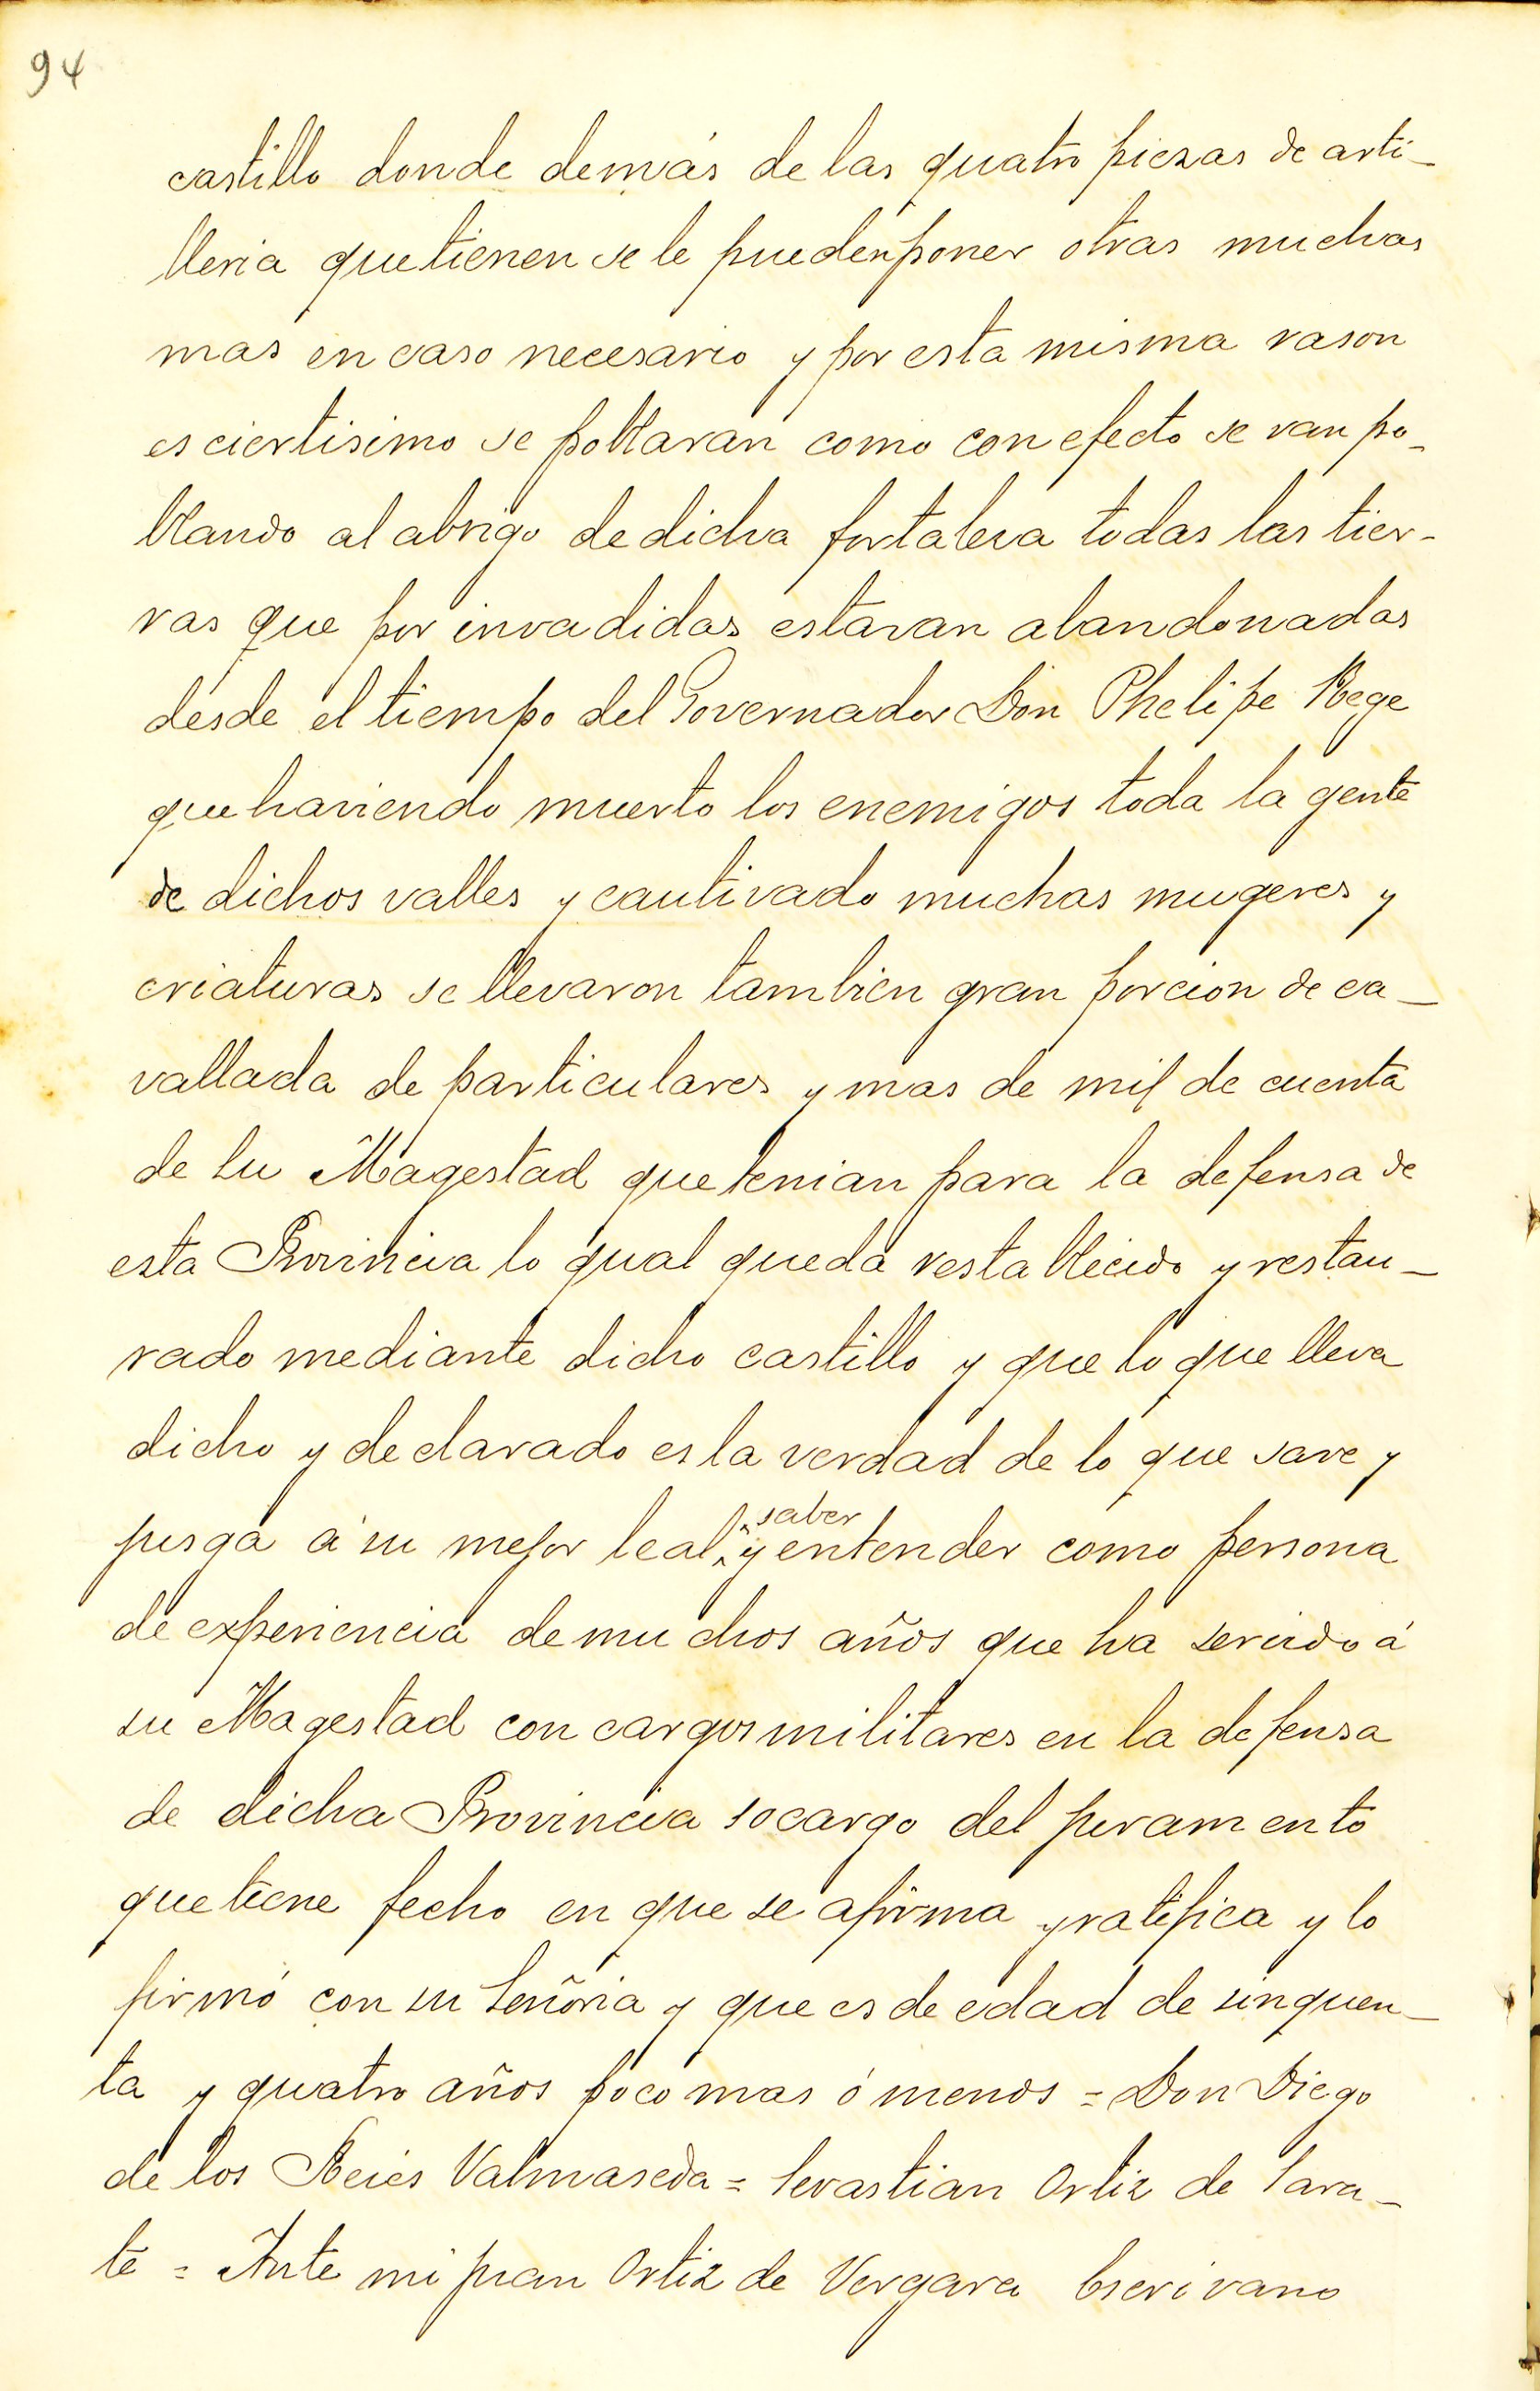 94
castillo donde demás de las quatro piezas de arti-
lleria que tienen se le pueden poner otras muchas
mas en caso necesario y por esta misma rason
es ciertisimo se poblaran como con efecto se van po-
blando al abrigo de dicha fortalesa todas las tier-
ras que por invadidas estavan abandonadas
desde el tiempo del Governador Don Phelipe Rege
que haviendo muerto los enemigos toda la gente
de dichos valles y cautivado muchas mugeres y
criaturas se llevaron tambien gran porcion de ca-
vallada de particulares y mas de mil de cuenta
de su Magestad que tenian para la defensa de
esta Provincia lo qual queda restablecido y restau-
rado mediante dicho castillo y que lo que lleva
dicho y declarado es la verdad de lo que save y
jusga á su mejor leal saber y entender como persona
de experiencia de muchos años que ha servido á
su Magestad con cargos militares en la defensa
de dicha Provincia so cargo del juramento
que tiene fecho en que se afirma y ratifica y lo
firmó con su Señoria y que es de edad de sinquen-
ta y quatro años poco mas ó menos = Don Diego
de los Reies Valmaseda = Sevastian Ortiz de Sara-
te = Ante mi Juan Ortiz de Vergara Escrivano